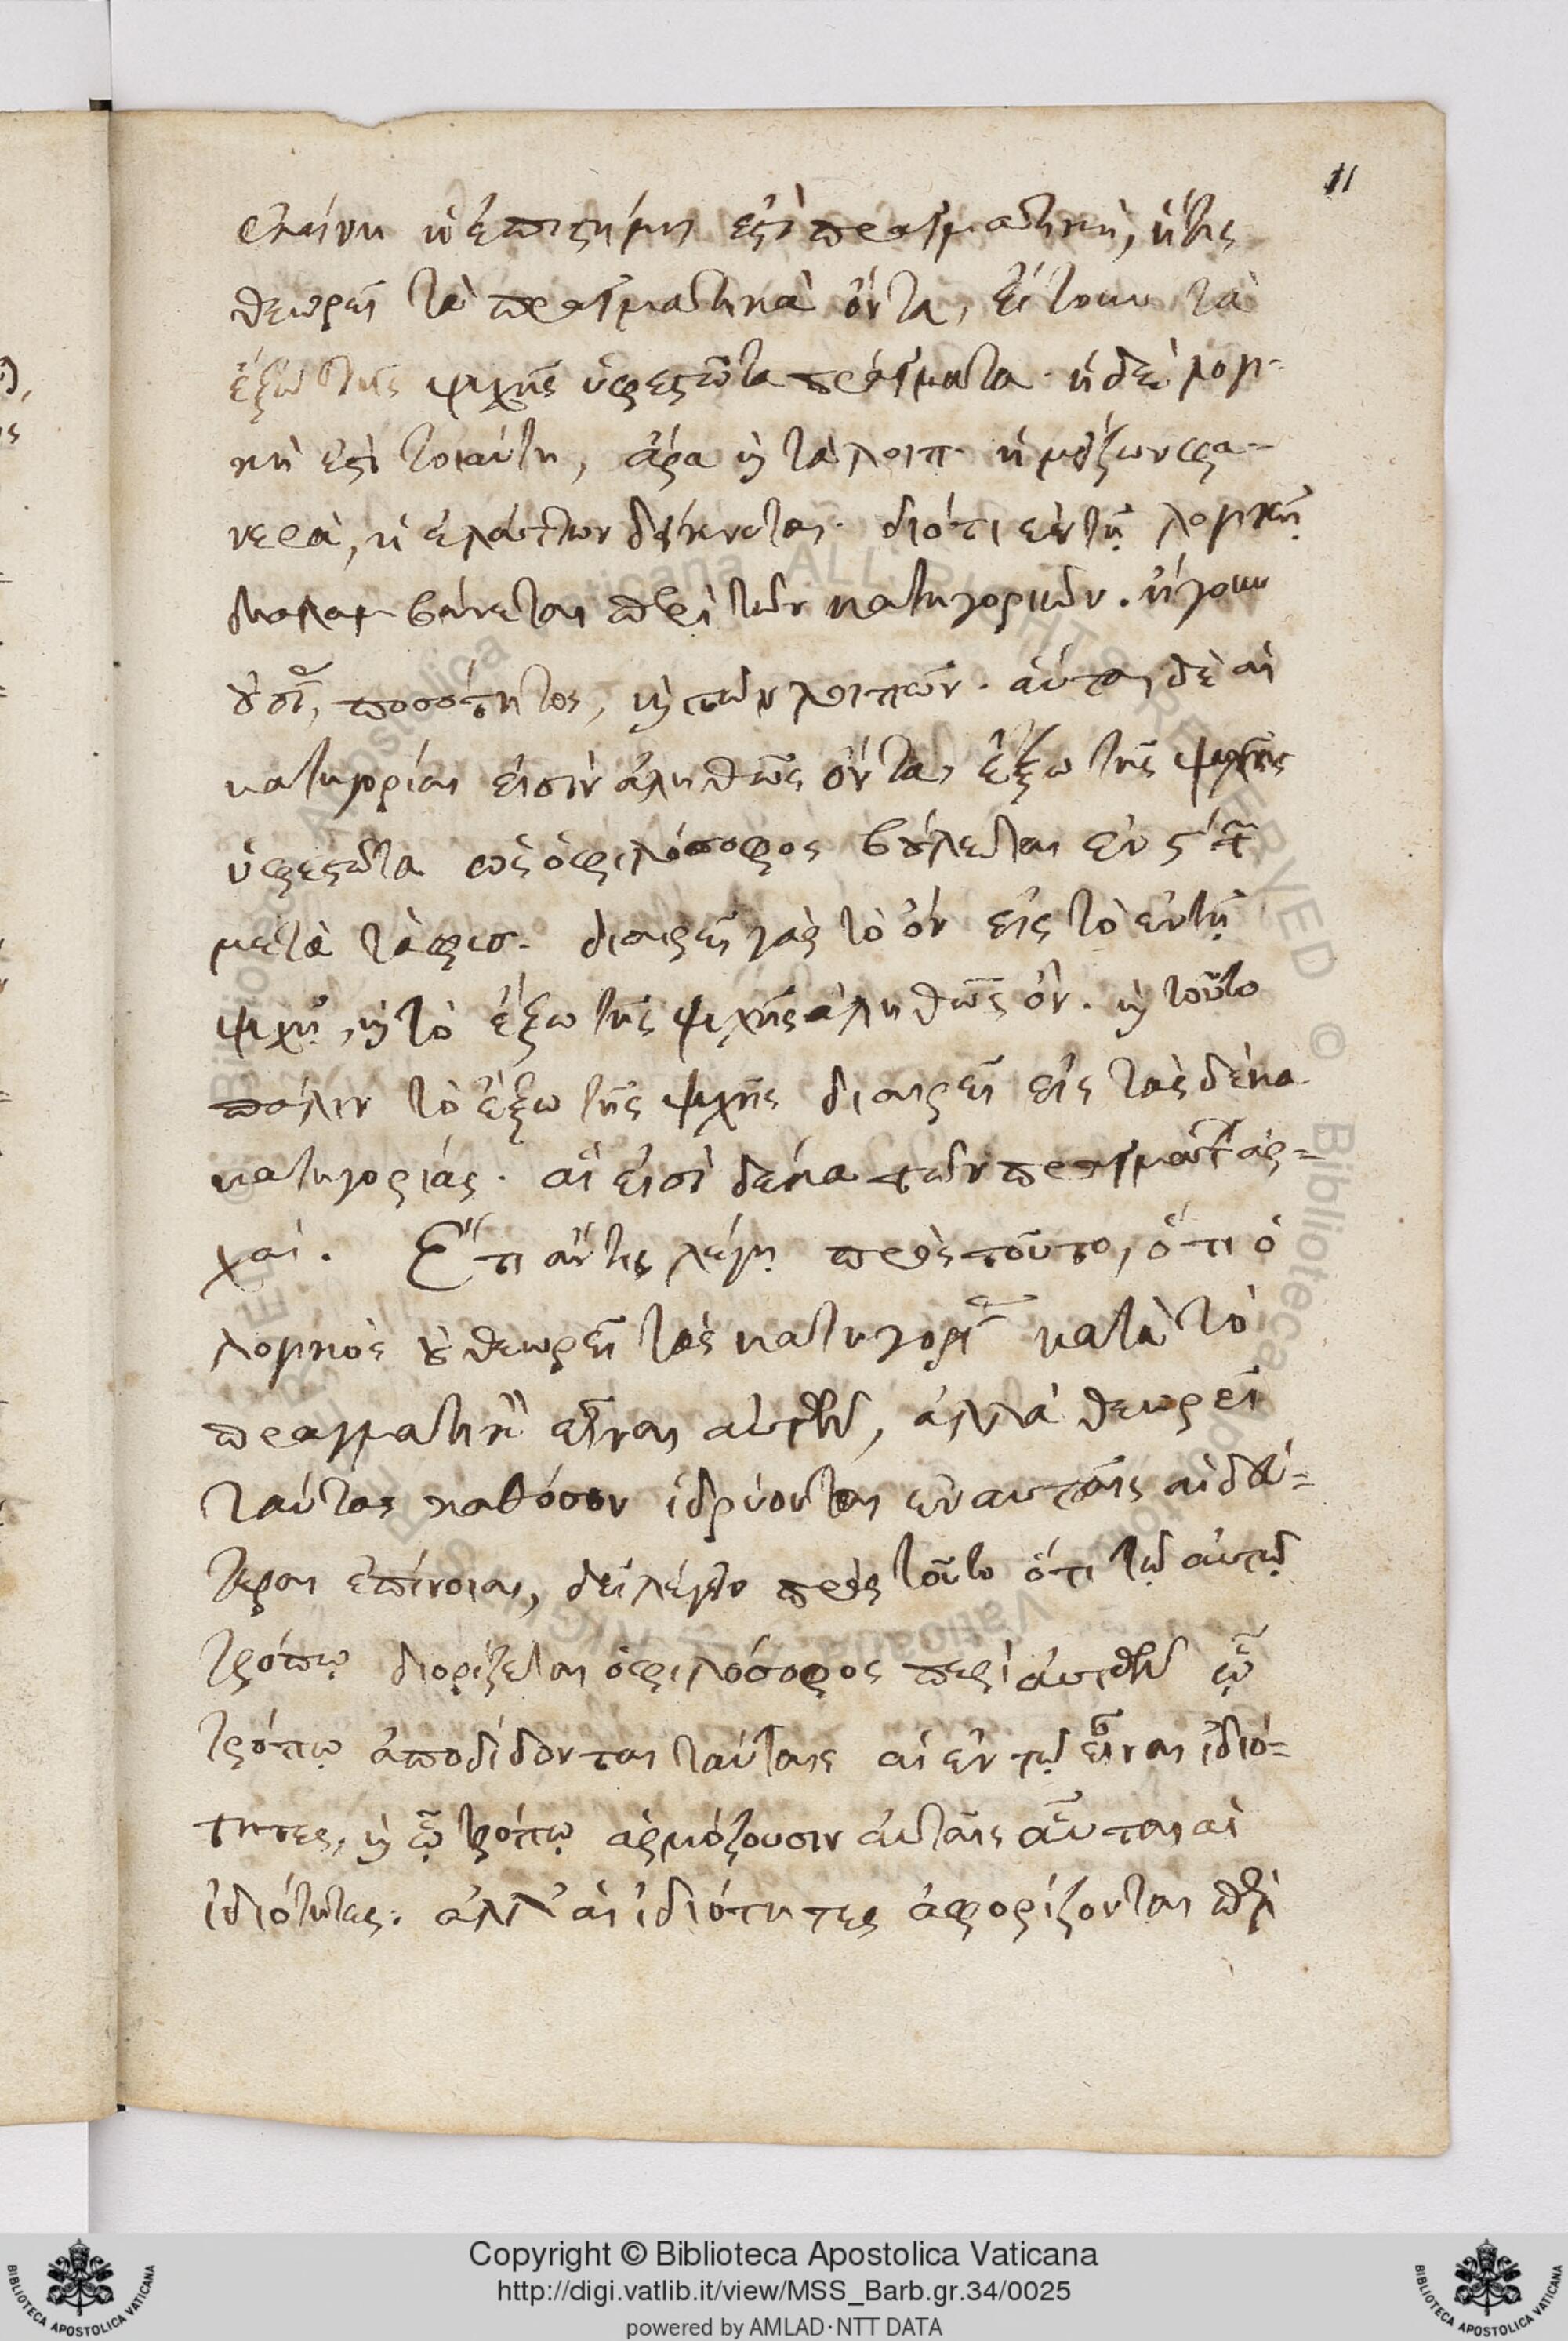 11
ἐκείνη ἡ ἐπιστήμη ἐστὶ πραγματικὴ, ἥτις
θεωρεῖ τὰ πραγματικὰ ὄντα, εἴτουν τὰ
ἔξω τῆς ψυχῆς ὑφεστῶτα πράγματα· ἡ δὲ λογι-
κὴ ἐστὶ τοιαύτη, ἄρα καὶ τὰ λοιπ. ἡ μείζων φα-
νερὰ, ἡ ἐλάττων δείκνυται· διότι ἐν τῇ λογικῇ
διαλαμβάνεται περὶ τῶν κατηγοριῶν. ἤγουν
οὐσί, ποσότητος, καὶ τῶν λοιπῶν. αὗται δὲ αἱ
κατηγορίαι εἰσὶν ἀληθῶς ὄντα, ἔξω τῆς ψυχῆς
ὑφεστῶτα ὡς ὁ φιλόσοφος βούλεται ἐν ϛ΄ τ
μετὰ τὰ φυσ. διαιρεῖ γὰρ τὸ ὂν εἰς τὸ ἐν τῇ
ψυχῇ, καὶ τὸ ἔξω τῆς ψυχῆς ἀληθῶς ὄν. καὶ τοῦτο
πάλιν τὸ ἔξω τῆς ψυχῆς διαιρεῖ εἰς τὰς δέκα
κατηγορίας. αἳ εἰσὶ δέκα τῶν πραγμάτ ἀρ-
χαί. Ἔτι ἄν τις λέγῃ πρὸς τοῦτο, ὅτι ὁ
λογικὸς οὐ θεωρεῖ τὰς κατηγορί κατὰ τὸ
πραγματικὸν εἶναι αὐτῶν, ἀλλὰ θεωρεῖ
ταύτας καθόσον ἱδρύονται ἐν αὐταῖς αἱ δεύ-
τεραι ἐπίνοιαι, δεῖ λέγειν πρὸς τοῦτο ὅτι τῷ αὐτῷ
τρόπῳ διορίζεται ὁ φιλόσοφος περὶ αὐτῶν ᾧ
τρόπῳ ἀποδίδονται ταύταις αἱ ἐν τῷ εἶναι ἰδιό-
τητες, καὶ ᾧ τρόπῳ ἁρμόζουσιν αὐταῖς αὗται αἱ
ἰδιότητες. ἀλλ' αἱ ἰδιότητες ἀφορίζονται περὶ
Copyright © Biblioteca Apostolica Vaticana
http://digi.vatlib.it/view/MSS_Barb.gr.34/0025
powered by AMLAD·NTT DATA
BIBLIOTECA APOSTOLICA VATICANA
BIBLIOTECA APOSTOLICA VATICANA